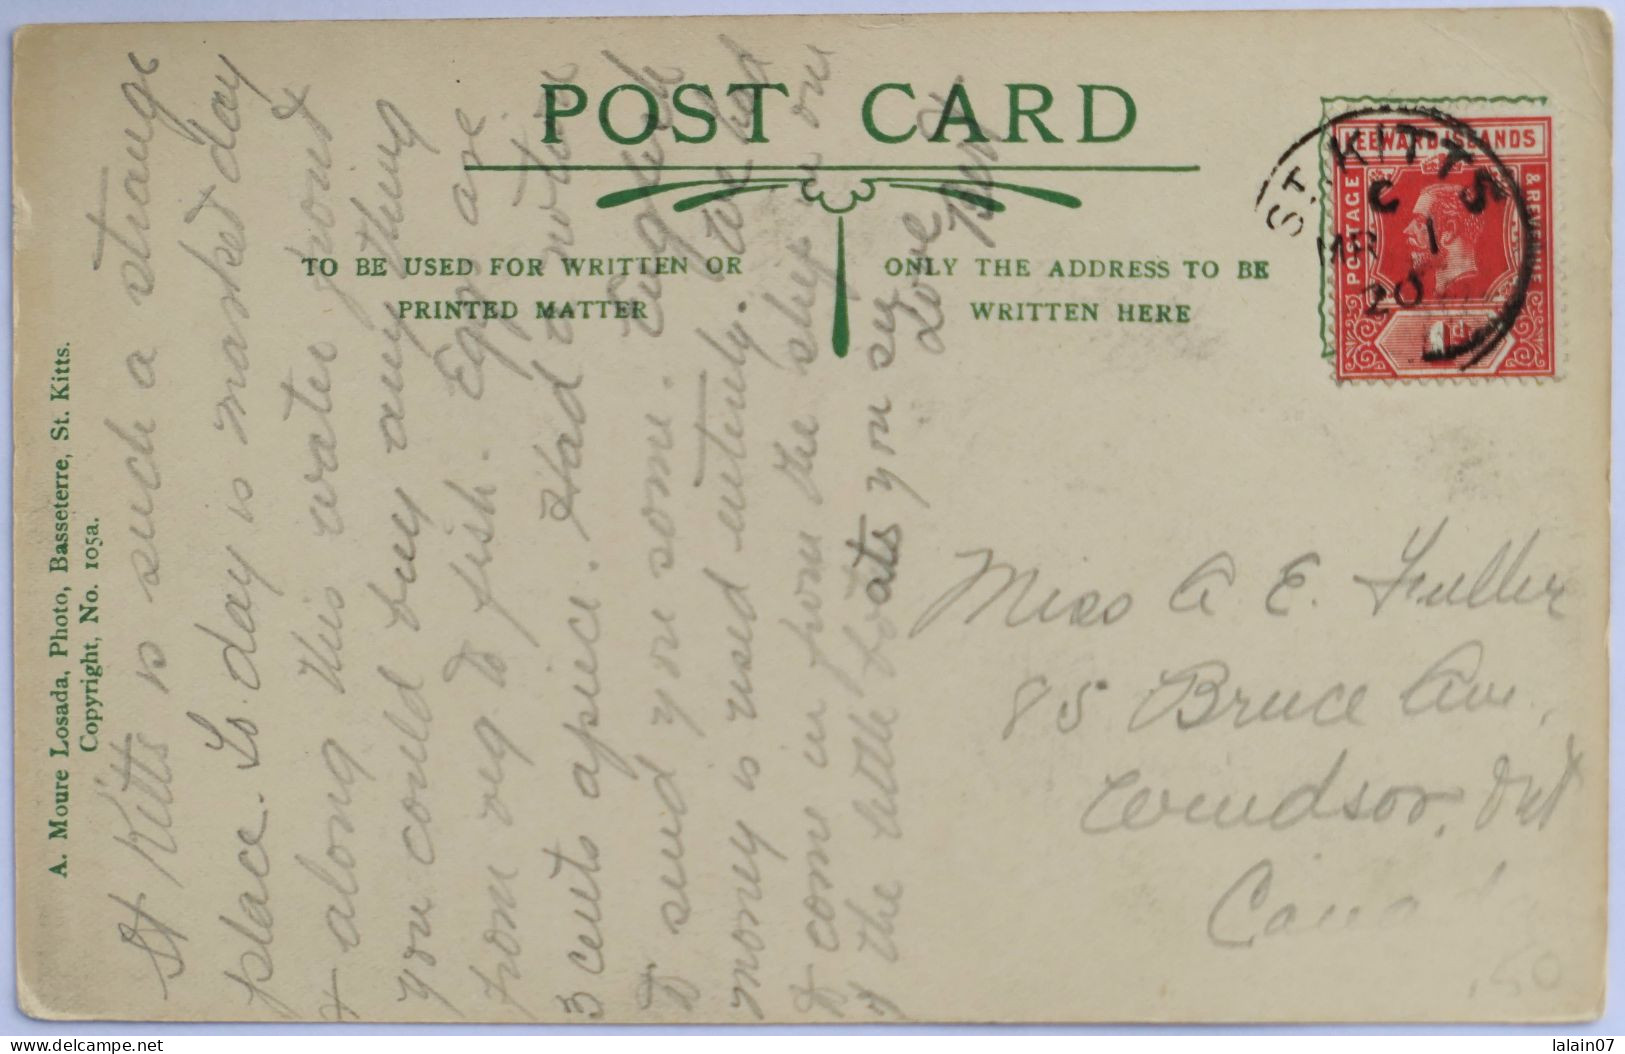 POST CARD
TO BE USED FOR WRITTEN OR
PRINTED MATTER
ONLY THE ADDRESS TO BE
WRITTEN HERE
A. Moure Losada, Photo, Basseterre, St. Kitts.
Copyright, No. 105a.
St Kitts is such a strange
place. To day is market day
+ along this water front
you could buy any thing
from veg to fish. Eggs are
3 cents apiece. Had a notion
to send you some. English
money is used entirely. We had
to come in from the ship in one
of the little boats you see
Love
LEEWARD ISLANDS
POSTAGE
& REVENUE
1d
ST. KITTS
C
MR 1
20
Miss A E. Fuller
85 Bruce Ave,
Windsor, Ont
Canada
.50
lalain07